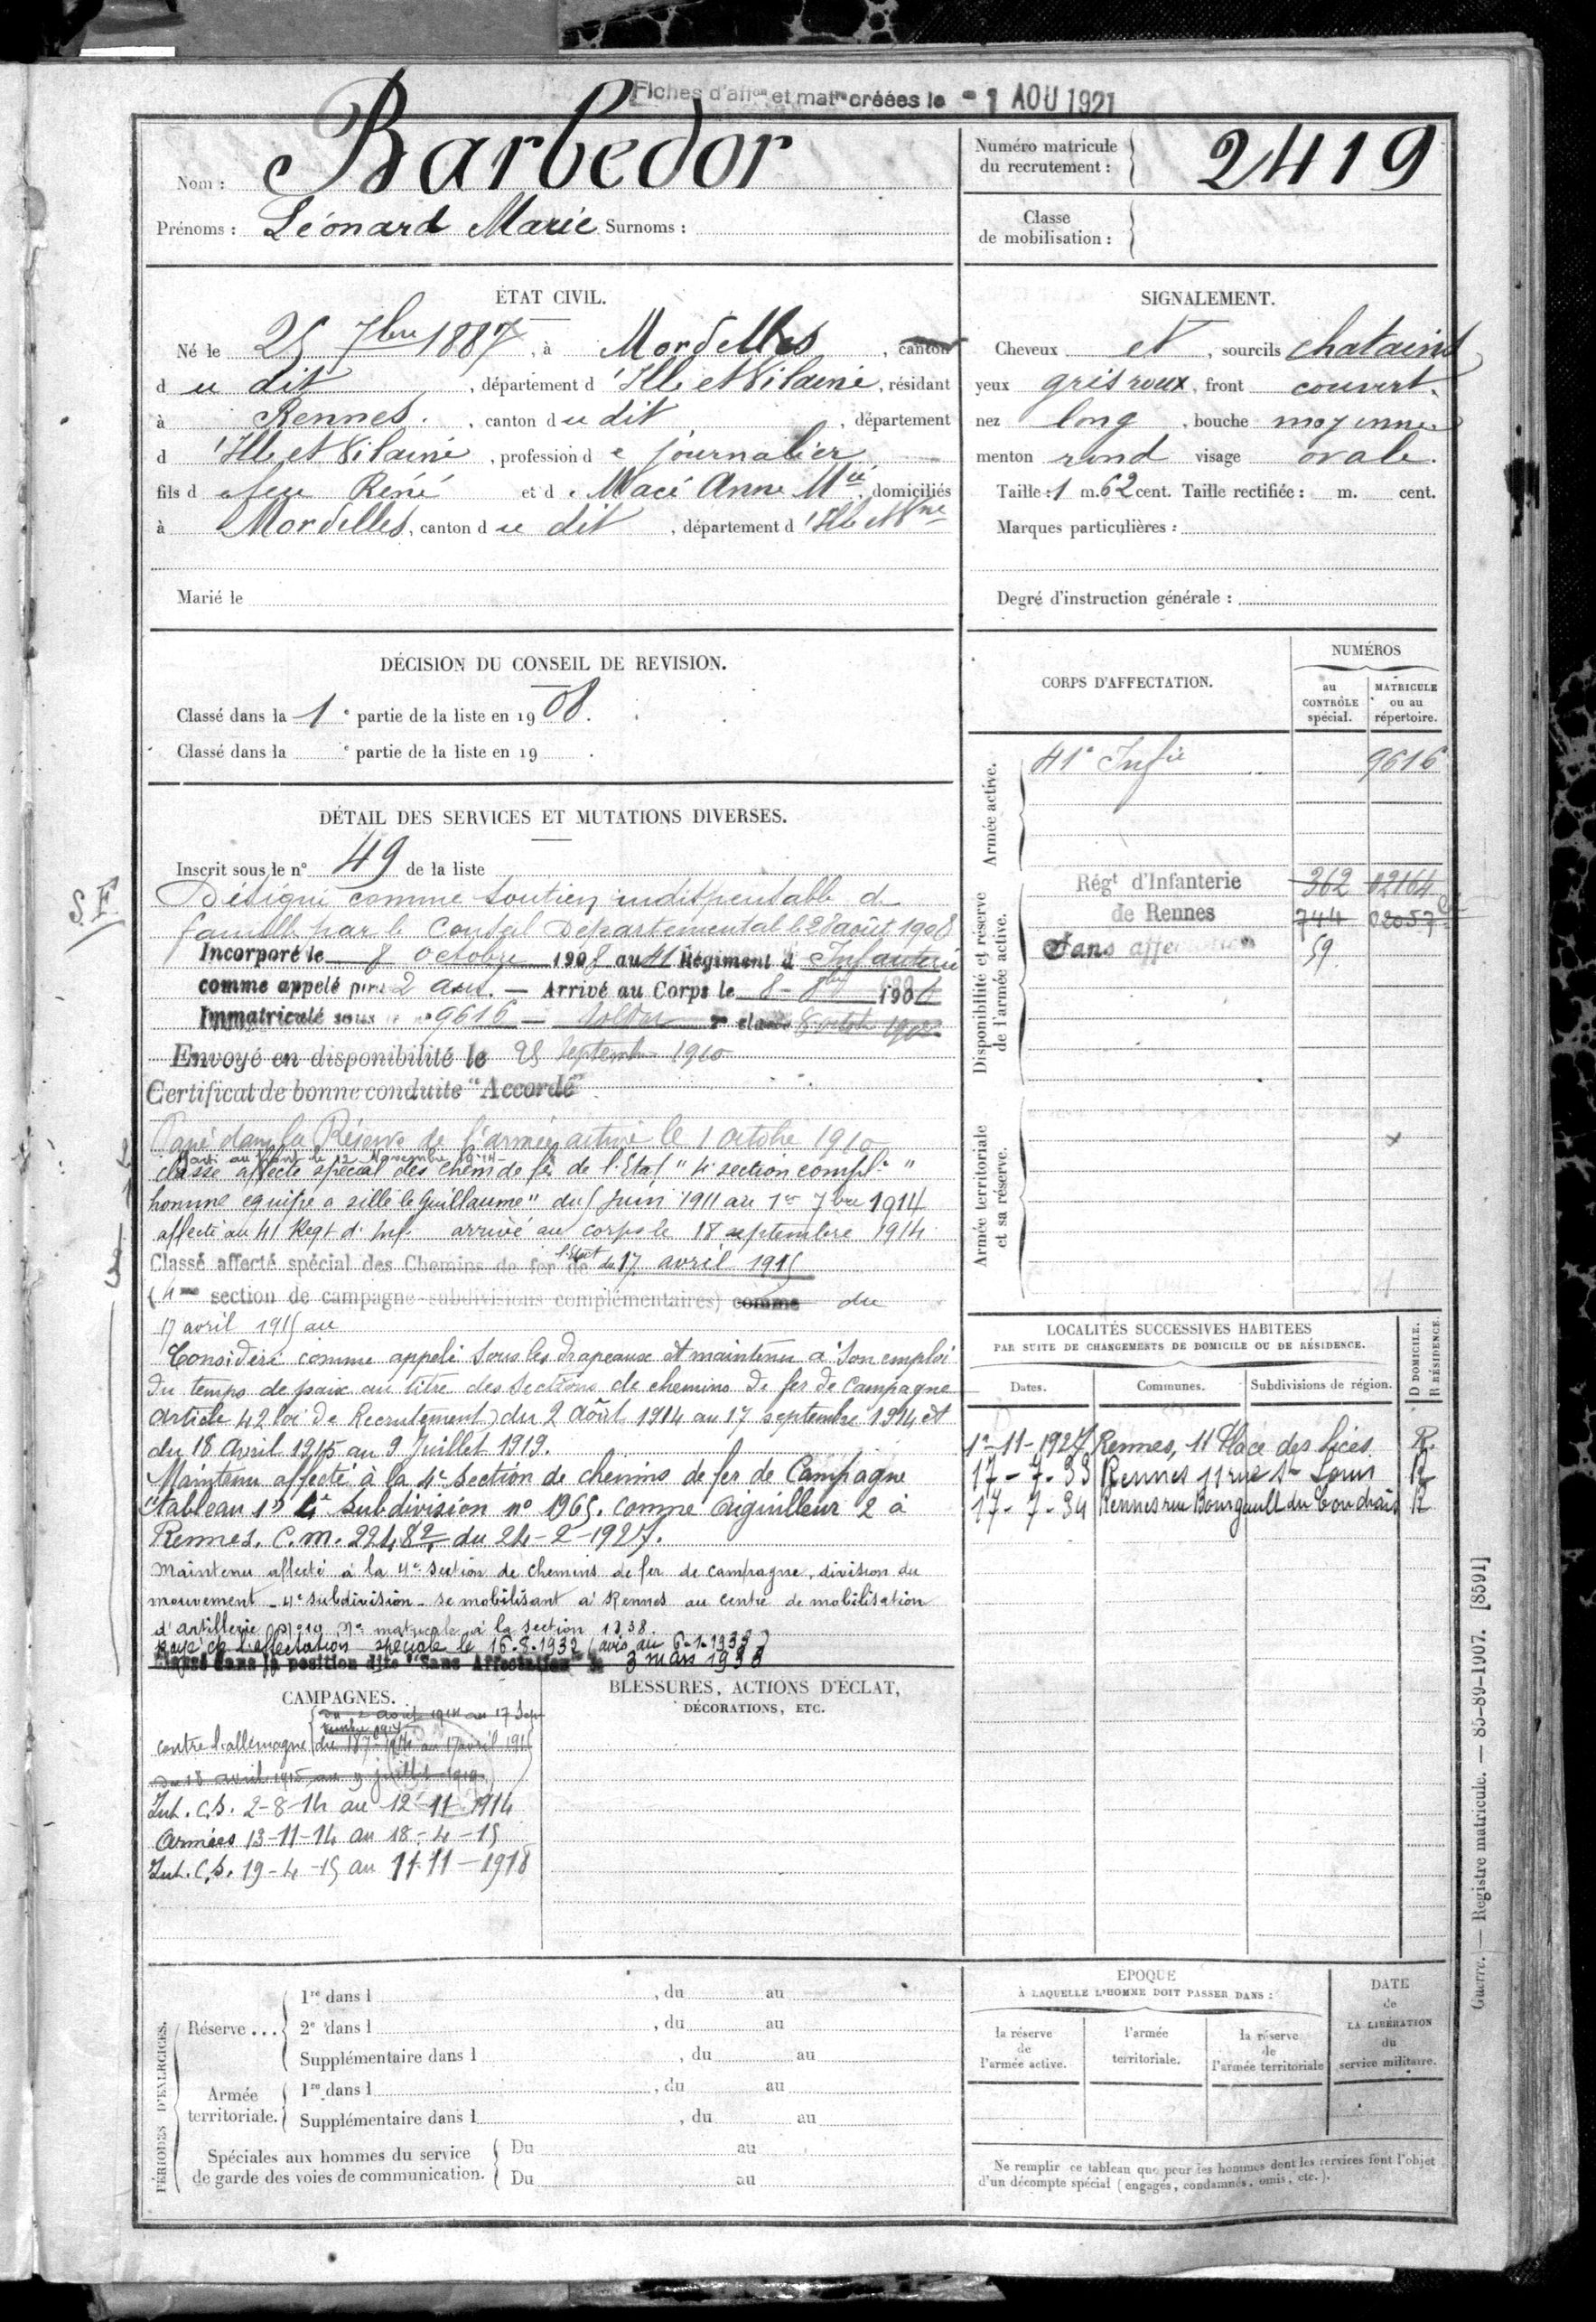 Fiches d'affon et matre créées le - 1 AOU 1921
Nom : Barbedor
Prénoms : Léonard Marie Surnoms :
Numéro matricule du recrutement : 2419
Classe de mobilisation :
ÉTAT CIVIL.
Né le 25 7bre 1887, à Mordelles, canton
du dit, département d'Ille et Vilaine, résidant
à Rennes, canton du dit, département
d'Ille et Vilaine, profession de journalier
fils de feu René et de Macé Anne Mie, domiciliés
à Mordelles, canton du dit, département d'Ille et Vne
Marié le
SIGNALEMENT.
Cheveux et, sourcils chatains
yeux gris roux, front couvert.
nez long, bouche moyenne
menton rond visage ovale.
Taille : 1 m. 62 cent. Taille rectifiée : m. cent.
Marques particulières :
Degré d'instruction générale :
DÉCISION DU CONSEIL DE REVISION.
Classé dans la 1e partie de la liste en 1908.
Classé dans la e partie de la liste en 19 .
DÉTAIL DES SERVICES ET MUTATIONS DIVERSES.
Inscrit sous le n° 49 de la liste
S.F.
Désigné comme soutien indispensable de
famille par le Conseil Départemental le 28 août 1908
Incorporé le 8 octobre 1908 au 41 Régiment d'Infanterie
comme appelé pour 2 ans. — Arrivé au Corps le 8-8bre 1908
Immatriculé sous le n° 9616 — soldat de 2e classe 8 octobre 1908
Envoyé en disponibilité le 25 Septembre 1910
Certificat de bonne conduite "Accordé"
Passé dans la Réserve de l'armée active le 1 octobre 1910
Parti au front le 12 Novembre 1914
classé affecté spécial des chem de fer de l'Etat "4e section complre"
homme équipe a sillé le Guillaume" du 5 juin 1911 au 1er 7bre 1914
affecté au 41 Regt d'inf. arrivé au corps le 18 septembre 1914
Classé affecté spécial des Chemins de fer de l'Etat du 17 avril 1915
(4me section de campagne subdivisions complémentaires) comme du
17 avril 1915 au
Considéré comme appelé sous les drapeaux et maintenu à son emploi
du temps de paix au titre des sections de chemins de fer de Campagne
Article 42 loi de Recrutement) du 2 Août 1914 au 17 septembre 1914 et
du 18 Avril 1915 au 9 Juillet 1919.
Maintenu affecté à la 4e section de chemins de fer de Campagne
"tableau 1" 4e subdivision n° 1965. comme aiguilleur 2 à
Rennes. C.M. 22482 du 24-2-1927.
Maintenu affecté à la 4e section de chemins de fer de campagne, division du
mouvement - 4e subdivision - se mobilisant à Rennes au centre de mobilisation
d'artillerie n° 19 No matricule à la section 1838.
Rayé de l'affectation spéciale le 16.8.1932 (avis du 6-1-1933)
Classé dans la position dite "Sans Affectation" le 3 mars 1933
CORPS D'AFFECTATION.
NUMÉROS
au CONTRÔLE spécial.
MATRICULE ou au répertoire.
Armée active.
41e Infie 9616
Disponibilité et réserve de l'armée active.
Régt d'Infanterie 362 02164
de Rennes 744 02057
Sans affectation 59
Armée territoriale et sa réserve.
LOCALITÉS SUCCESSIVES HABITÉES
PAR SUITE DE CHANGEMENTS DE DOMICILE OU DE RÉSIDENCE.
Dates. Communes. Subdivisions de région. D DOMICILE. R RÉSIDENCE.
1e-11-1927 Rennes, 11 Place des Lices R.
17-7-33 Rennes 11 rue St Louis R
17-7-34 Rennes rue Bourgault du Coudrais R
CAMPAGNES.
contre l'allemagne
du 2 août 1914 au 17 Sep-
tembre 1914
du 18 7bre 1914 au 17 avril 1915
du 18 avril 1915 au 9 juillet 1919
Int. C.S. 2-8-14 au 12-11-1914
Armées 13-11-14 au 18-4-15
Int. C.S. 19-4-15 au 11-11-1918
BLESSURES, ACTIONS D'ÉCLAT,
DÉCORATIONS, ETC.
PÉRIODES D'EXERCICES.
Réserve ...
1re dans l , du au
2e dans l , du au
Supplémentaire dans l , du au
Armée territoriale.
1re dans l , du au
Supplémentaire dans l , du au
Spéciales aux hommes du service
de garde des voies de communication.
Du au
Du au
EPOQUE
À LAQUELLE L'HOMME DOIT PASSER DANS :
la réserve de l'armée active.
l'armée territoriale.
la réserve de l'armée territoriale
DATE de LA LIBÉRATION du service militaire.
Ne remplir ce tableau que pour les hommes dont les services font l'objet
d'un décompte spécial (engagés, condamnés, omis, etc.).
Guerre. — Registre matricule. — 85-89-1907. [8591]